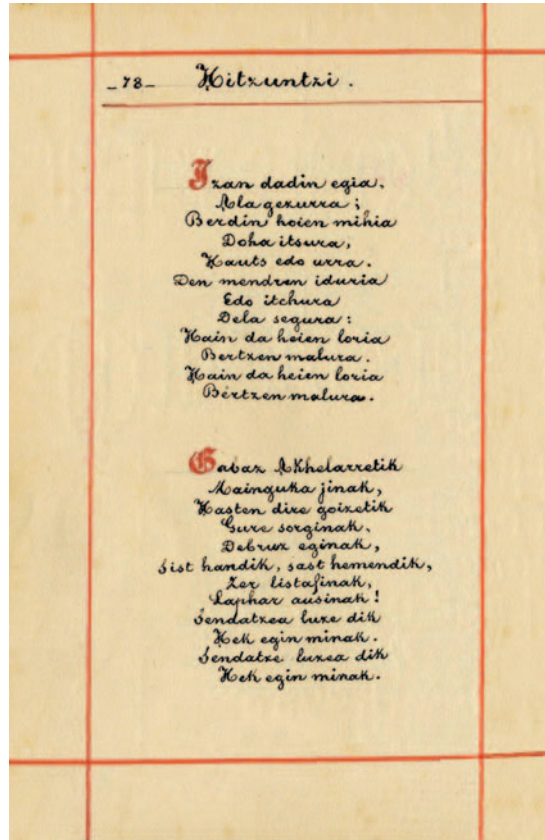 _78_ Hitzuntzi.
Izan dadin egia,
Ala gezurra;
Berdin hoien mihia
Doha itsura,
Hauts edo urra.
Den mendren iduria
Edo itchura
Dela segura:
Hain da heien loria
Bertzen malura.
Hain da heien loria
Bertzen malura.
Gabaz Akhelarretik
Mainguka jinak,
Hasten dire goizetik
Gure sorginak.
Debruz eginak,
Sist handik, sast hemendik,
Zer listafinak,
Laphar ausinak!
Sendatzea luze dik
Hek egin minak.
Sendatze luzea dik
Hek egin minak.